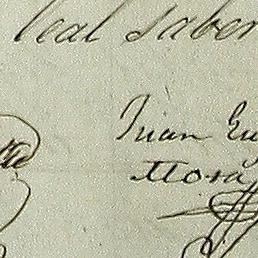 leal saber
Juan Eu
Mora